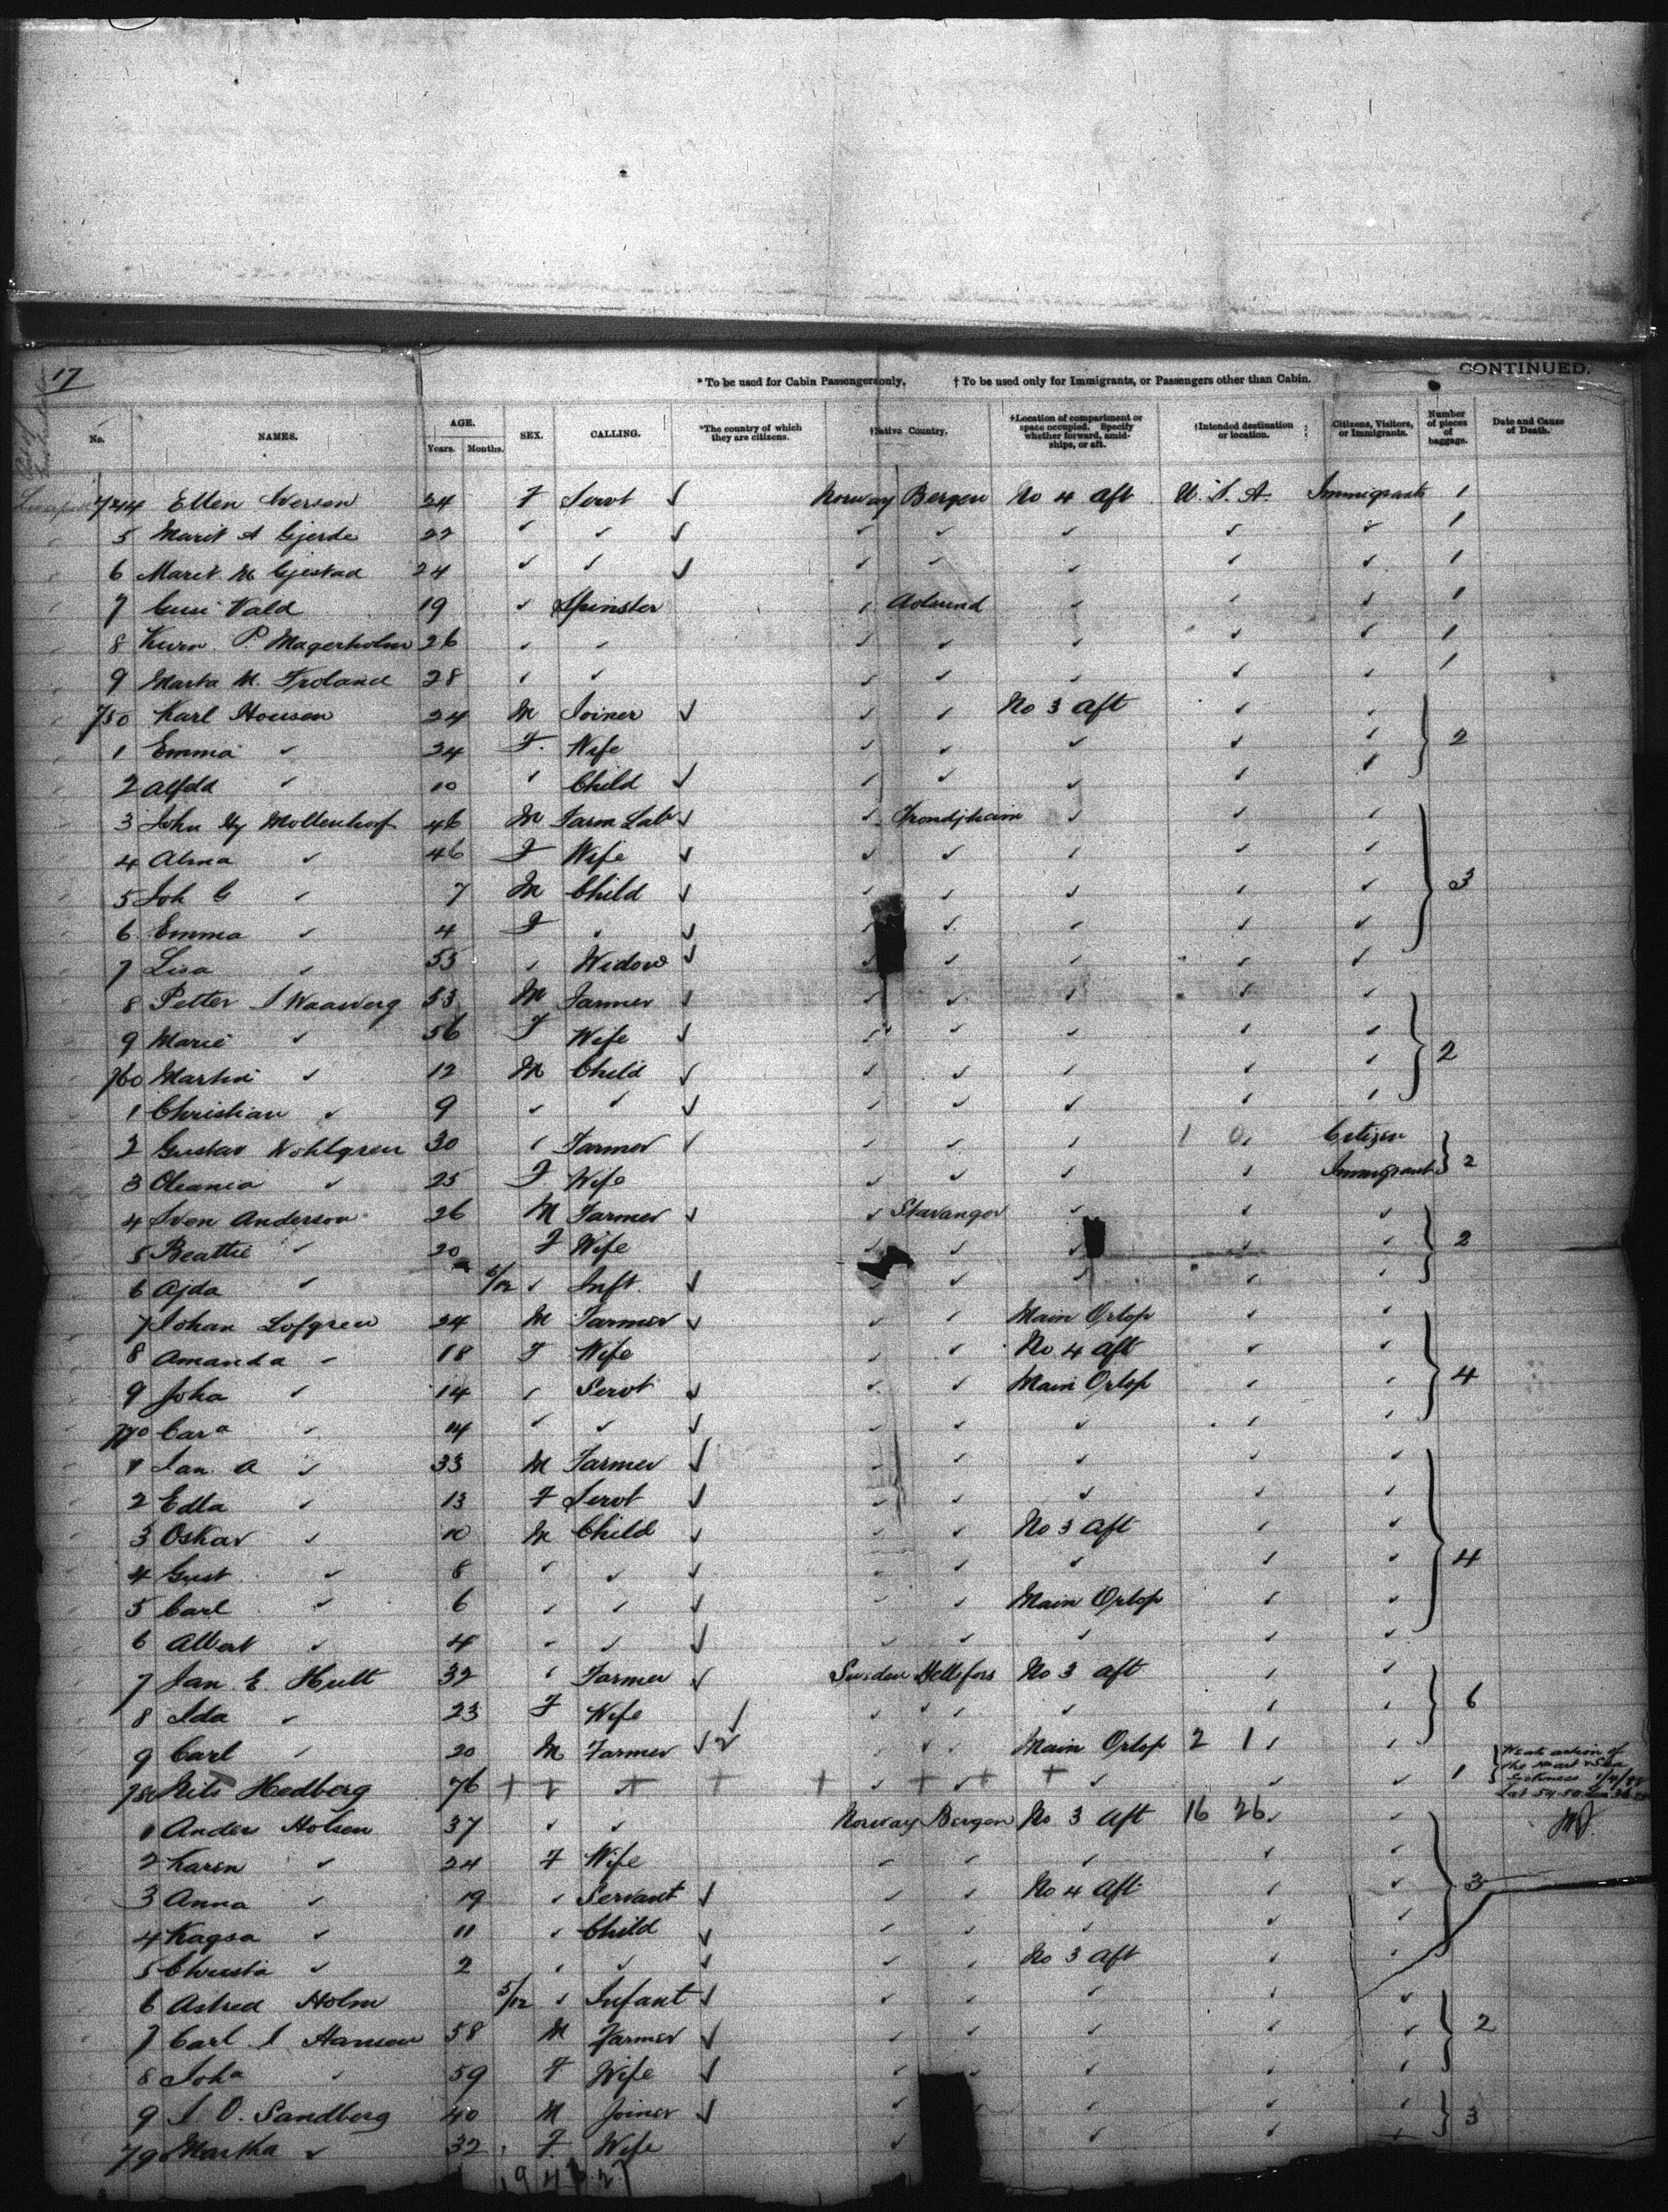 17
CONTINUED.
* To be used for Cabin Passengers only. † To be used only for Immigrants, or Passengers other than Cabin.
No. NAMES. AGE. Years. Months. SEX. CALLING. *The country of which they are citizens. †Native Country. †Location of compartment or space occupied. Specify whether forward, amidships, or aft. †Intended destination or location. Citizens, Visitors, or Immigrants. Number of pieces of baggage. Date and Cause of Death.
744 Ellen Iverson 24 F Servt ✓ Norway Bergen No 4 aft U.S.A. Immigrants 1
5 Marit A Gjerde 22 " " ✓ " " " " " 1
6 Marit M Gjestad 24 " " ✓ " " " " " 1
7 Vald 19 " Spinster " " " " 1
8 P. Magerholm 26 " " " " " " " 1
9 Marta M. Froland 28 " " " " " " " 1
750 Karl Housen 24 M Joiner ✓ " " No 3 aft " "
1 Emma " 24 F. Wife " " " " " 2
2 Alfda " 10 " Child ✓ " " " " "
3 John Hy Mollenhof 46 M Farm Labr ✓ " Trondjheim " " "
4 Alma " 46 F Wife ✓ " " " " "
5 Joh G " 7 M Child ✓ " " " " " 3
6 Emma " 4 F " ✓ " " " " "
7 Lisa " 55 " Widow ✓ " " " " "
8 Petter J Waawerg 53 M Farmer ✓ " " " " "
9 Marie " 56 F Wife ✓ " " " " " 2
760 Martin " 12 M Child ✓ " " " " "
1 Christian " 9 " " ✓ " " " " "
2 Gustav Wohlgren 30 " Farmer ✓ " " " 1 0 Citizen
3 Oleania " 25 F Wife " " " " Immigrant 2
4 Sven Anderson 26 M Farmer ✓ " Stavanger " " "
5 Beattie " 20 F Wife " " " " " 2
6 Ajda " 5/12 " Inft. ✓ " " " " "
7 Johan Lofgren 24 M Farmer ✓ " " Main Orlop " "
8 Amanda " 18 F Wife " " No 4 aft " "
9 Joha " 14 " Servt ✓ " " Main Orlop " " 4
770 Cara " 14 " " ✓ " " " " "
1 Jan. A " 33 M Farmer ✓ " " " " "
2 Edla " 13 F Servt ✓ " " " " "
3 Oskar " 10 M Child ✓ " " No 3 aft " "
4 Gust " 8 " " ✓ " " " " " 4
5 Carl " 6 " " ✓ " " Main Orlop " "
6 Albert " 4 " " ✓ " " " " "
7 Jan E. Hult 32 " Farmer ✓ Sweden Hellefors No 3 aft " "
8 Ida " 23 F Wife ✓ " " " " " 6
9 Carl " 20 M Farmer ✓ " " Main Orlop 2 1 "
780 Nils Hedberg 76 " " " " " " " 1 Weak action of the heart & Sea Sickness
1 Ander Holsen 37 " " Norway Bergen No 3 aft 16 26 "
2 Karen " 24 F Wife " " " " "
3 Anna " 19 " Servant ✓ " " No 4 aft " " 3
4 Kagsa " 11 " Child ✓ " " " " "
5 Christa " 2 " " ✓ " " No 3 aft " "
6 Astred Holm 5/12 " Infant ✓ " " " " "
7 Carl J. Hanson 58 M Farmer ✓ " " " " " 2
8 Joha " 59 F Wife ✓ " " " " "
9 J. O. Sandberg 40 M Joiner ✓ " " " " " 3
79 Martha " 32 F. Wife " " " "